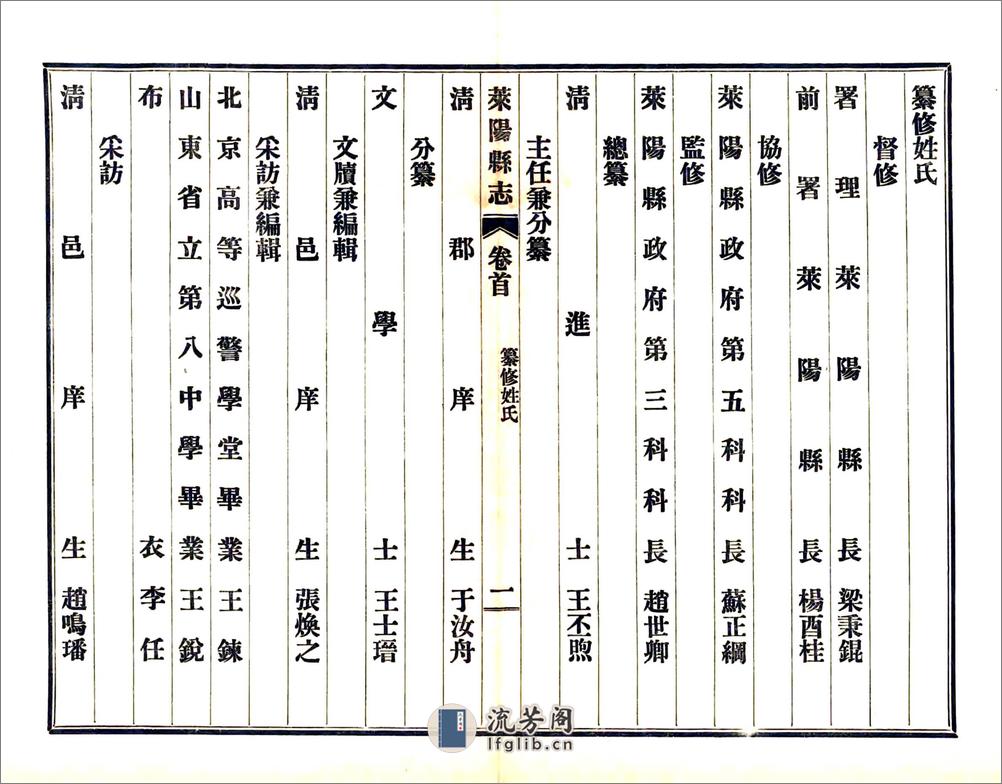 纂修姓氏
督修
署理萊陽縣長梁秉錕
前署萊陽縣長楊酉桂
協修
萊陽縣政府第五科科長蘇正綱
監修
萊陽縣政府第三科科長趙世卿
總纂
清進士王丕煦
主任兼分纂
萊陽縣志 卷首 纂修姓氏 二
清郡庠生于汝舟
分纂
文學士王士瑨
文牘兼編輯
清邑庠生張煥之
采訪兼編輯
北京高等巡警學堂畢業王鍊
山東省立第八中學畢業王銳
布衣李任
采訪
清邑庠生趙鳴璠
流芳阁
lfglib.cn